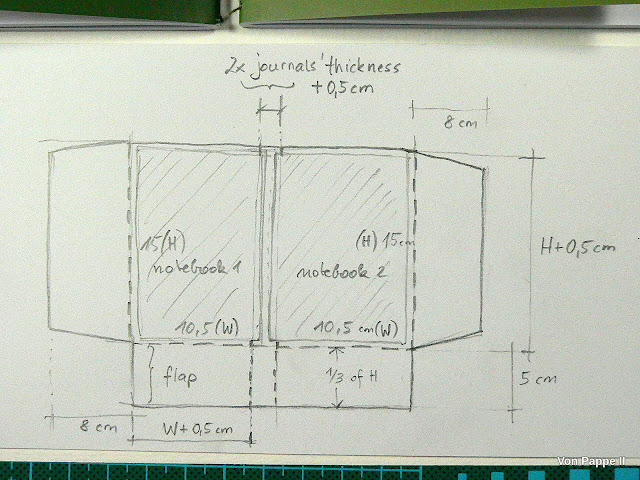 2x journals' thickness
+0,5cm
8 cm
15(H)
notebook 1
(H) 15cm
notebook 2
H+0,5cm
10,5(W)
10,5 cm(W)
flap
1/3 of H
5 cm
8 cm
W+0,5cm
Von Pappe II